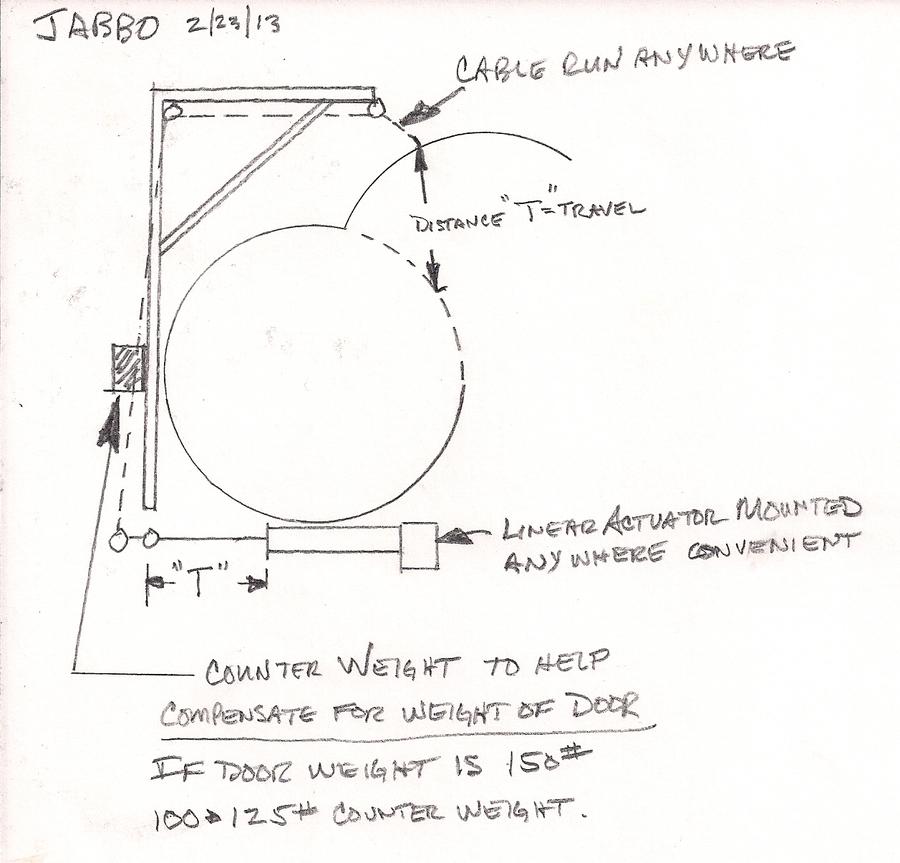 JABBO 2/23/13
CABLE RUN ANYWHERE
DISTANCE "T"=TRAVEL
LINEAR ACTUATOR MOUNTED
ANYWHERE CONVENIENT
"T"
COUNTER WEIGHT TO HELP
COMPENSATE FOR WEIGHT OF DOOR
IF DOOR WEIGHT IS 150#
100 125# COUNTER WEIGHT.